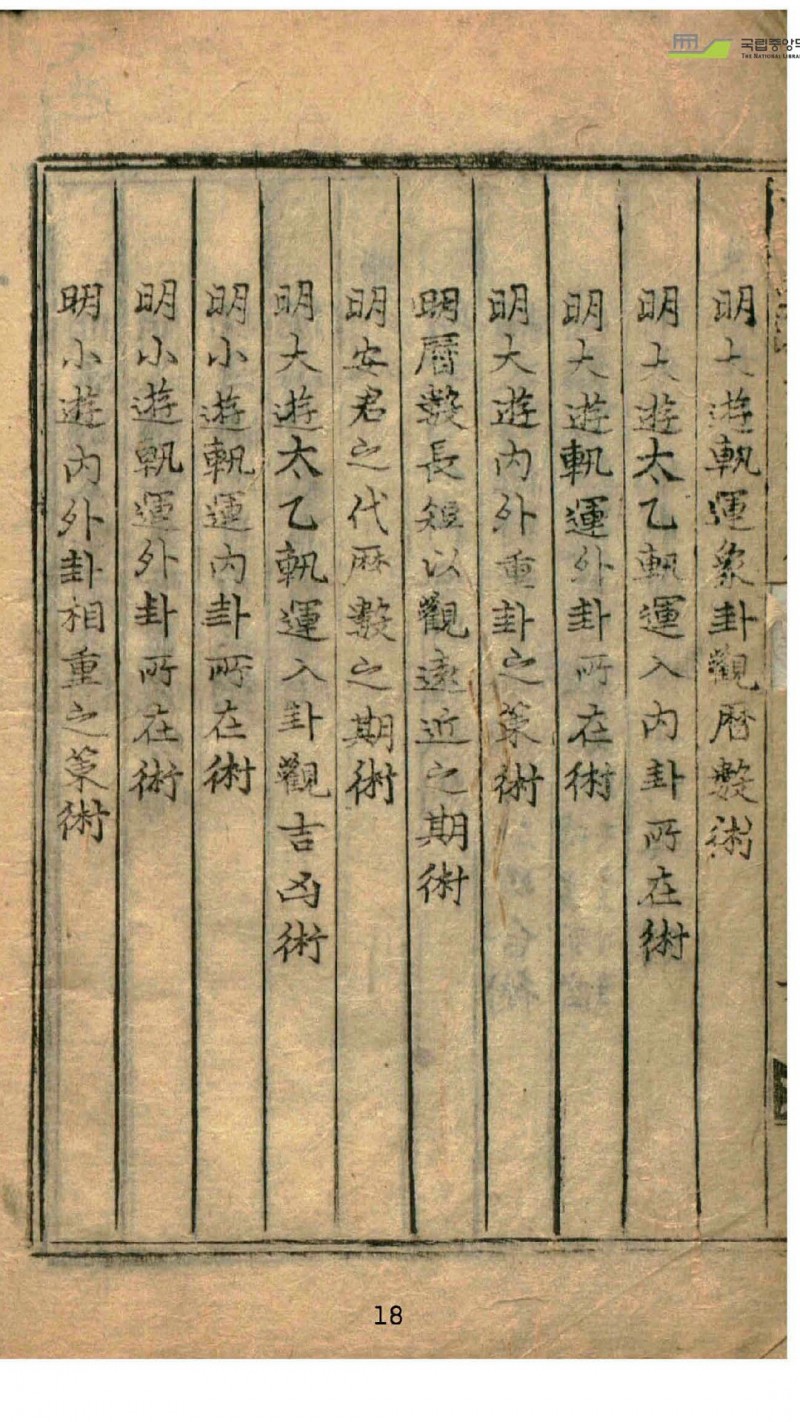 국립중앙도
THE NATIONAL LIBRA
明大遊軓運象卦觀曆數術
明大遊太乙軓運入內卦所在術
明大遊軓運外卦所在術
明大遊內外重卦之策術
明曆數長短以觀遠近之期術
明安君之代曆數之期術
明大遊太乙軓運入卦觀吉凶術
明小遊軓運內卦所在術
明小遊軓運外卦所在術
明小遊內外卦相重之策術
18